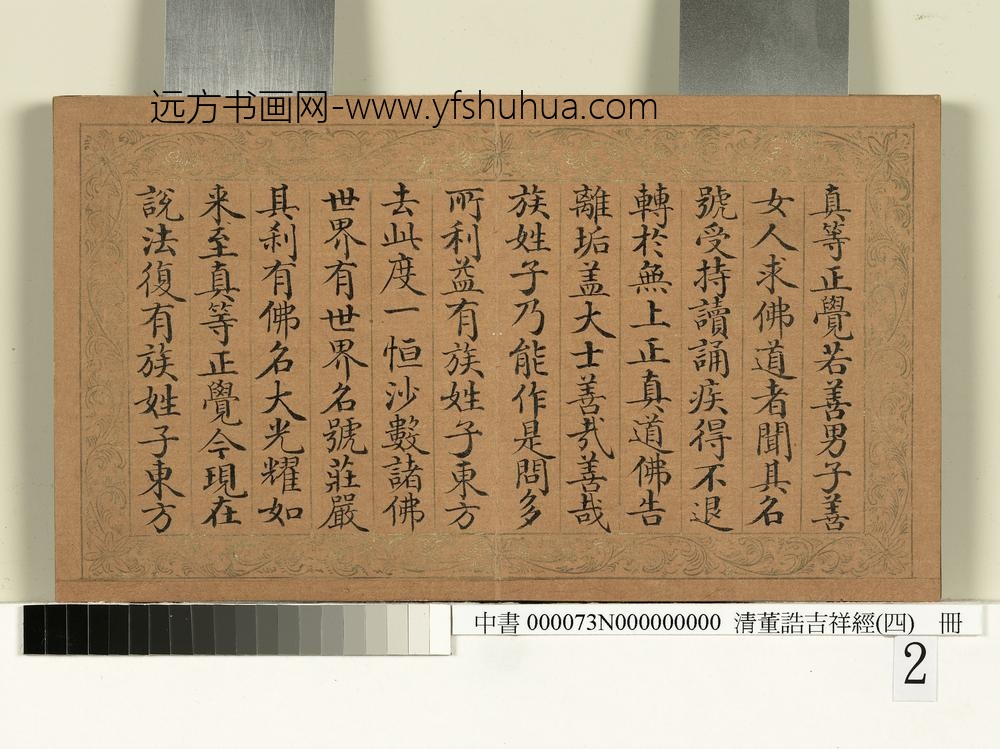 远方书画网-www.yfshuhua.com
真等正覺若善男子善
女人求佛道者聞其名
號受持讀誦疾得不退
轉於無上正真道佛告
離垢盖大士善哉善哉
族姓子乃能作是問多
所利益有族姓子東方
去此度一恒沙數諸佛
世界有世界名號莊嚴
具刹有佛名大光耀如
来至真等正覺今現在
説法復有族姓子東方
中書 000073N000000000 清董誥吉祥經(四) 冊
2